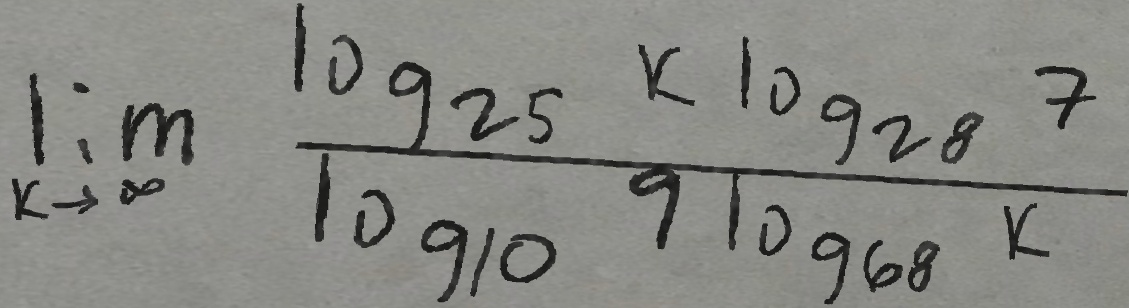 lim_{k→∞} \frac{log_{25} k log_{28} 7}{log_{10} 9 log_{68} k}